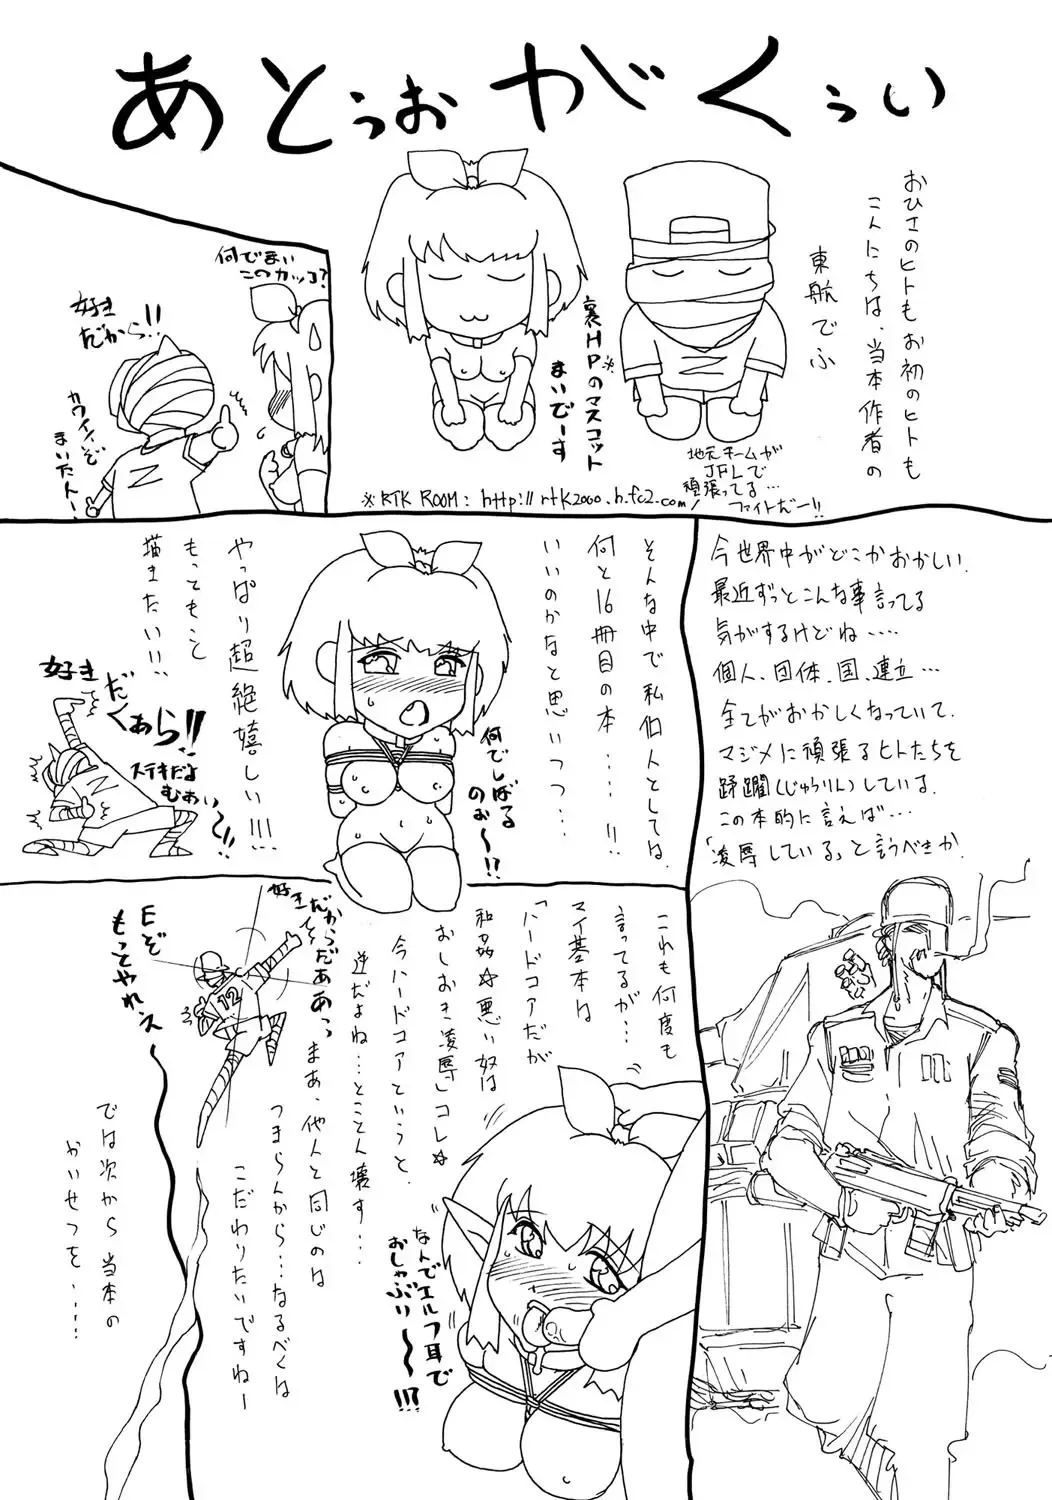 あとぅおがくぅい
おひさのヒトもお初のヒトも
こんにちは、当本作者の
東航でふ
裏HP※のマスコット
まいでーす
地元チームが
JFLで
頑張ってる…
ファイトだー!!
※RTK ROOM: http://rtk2000.h.fc2.com/
何でまい
このカッコ?
好き
だから!!
カワイイぞ
まいたん〜
今世界中がどこかおかしい。
最近ずっとこんな事言ってる
気がするけどね……
個人、団体、国、連立…
全てがおかしくなっていて、
マジメに頑張るヒトたちを
蹂躙(じゅうりん)している。
この本的に言えば…
「凌辱している」と言うべきか。
そんな中で私個人としては、
何と16冊目の本……!!
いいのかなと思いつつ…
やっぱり超絶嬉しい!!!
もっともっと
描きたい!!
何でしばる
のぉ〜!?
好き
だ
くぁら!!
ステキだよ
むぁい〜!!
これも何度も
言ってるが…
マイ基本は
「ハードコアだが
和姦☆悪い奴は
おしおき凌辱」コレ☆
今ハードコアというと、
逆だよね…とことん壊す…
まぁ、他人と同じのは
つまらんから…なるべくは
こだわりたいですねー
なんでエルフ耳で
おしゃぶり〜〜!?
好きだからだああっ
Eぞ
もっとやれぃス〜
12
では次から当本の
かいせつを……!